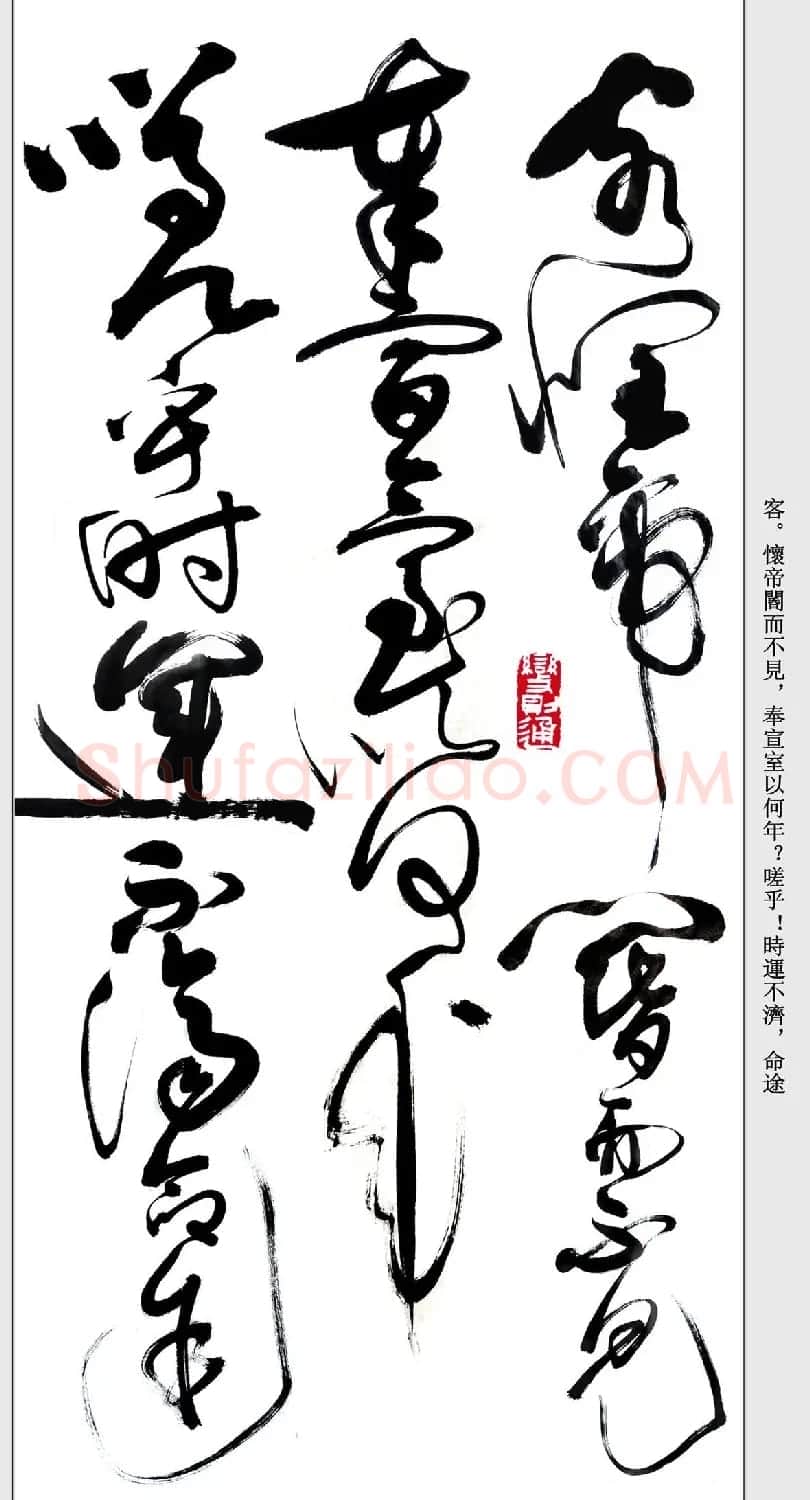 客懷帝閽而不見
奉宣室以何年
嗟乎時運不濟命途
變則通
客。懷帝閽而不見，奉宣室以何年？嗟乎！時運不濟，命途
Shufaziliao.COM